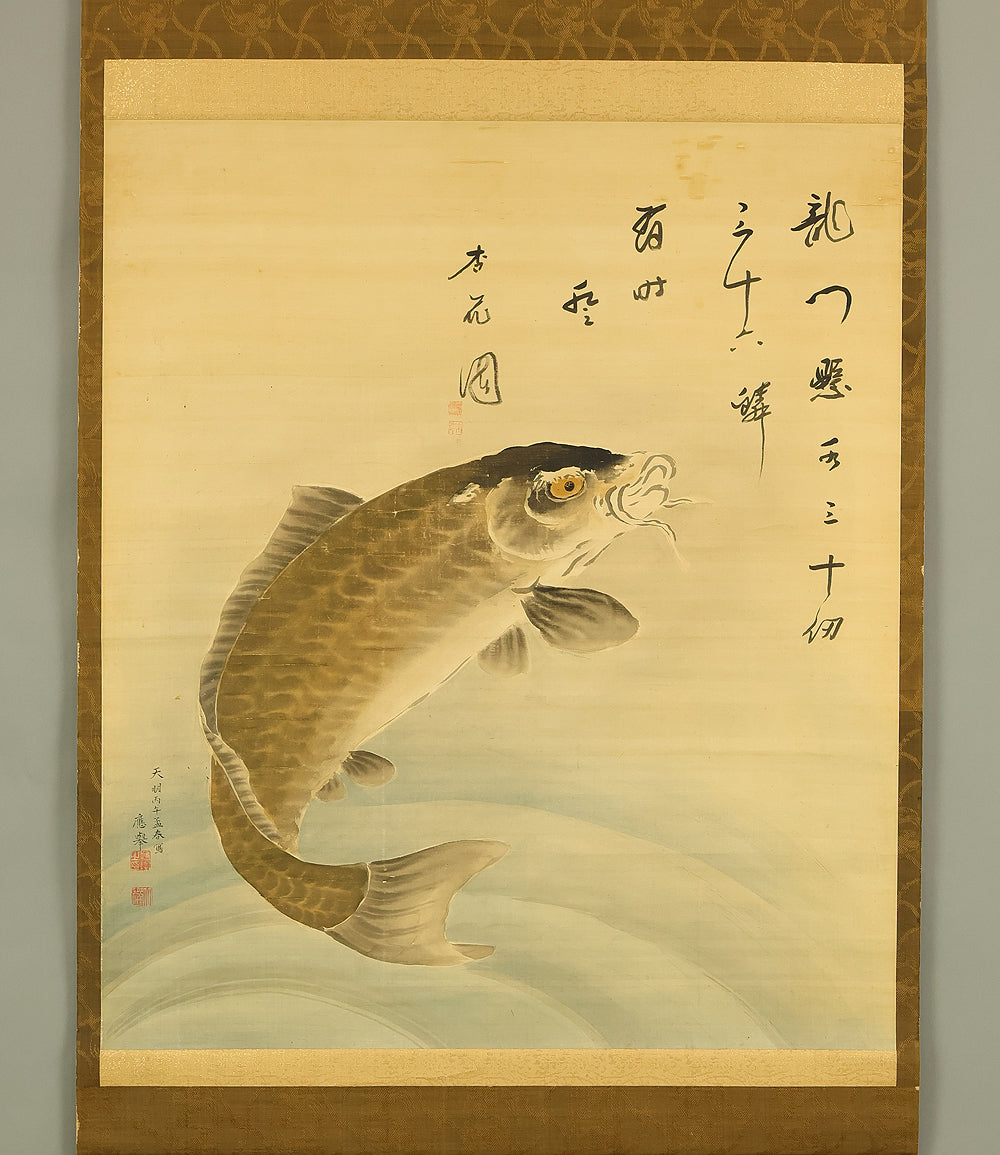 龍門懸水三十仞
三十六鱗
有時
杏花園
天明丙午孟春寫
應擧